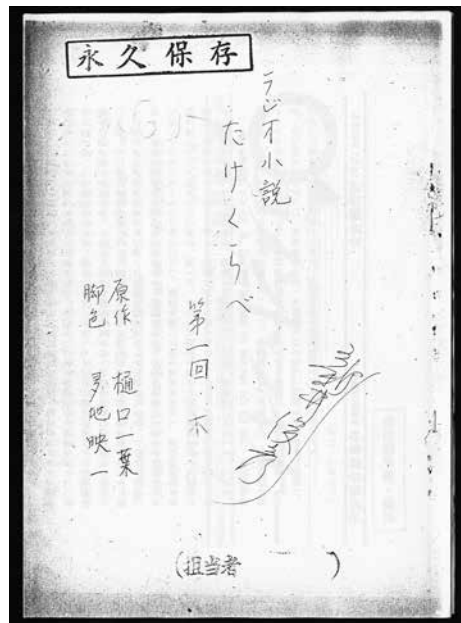 永久保存
ラジオ小説
たけくらべ
第一回
原作 樋口一葉
脚色 多地映一
(担当者 )